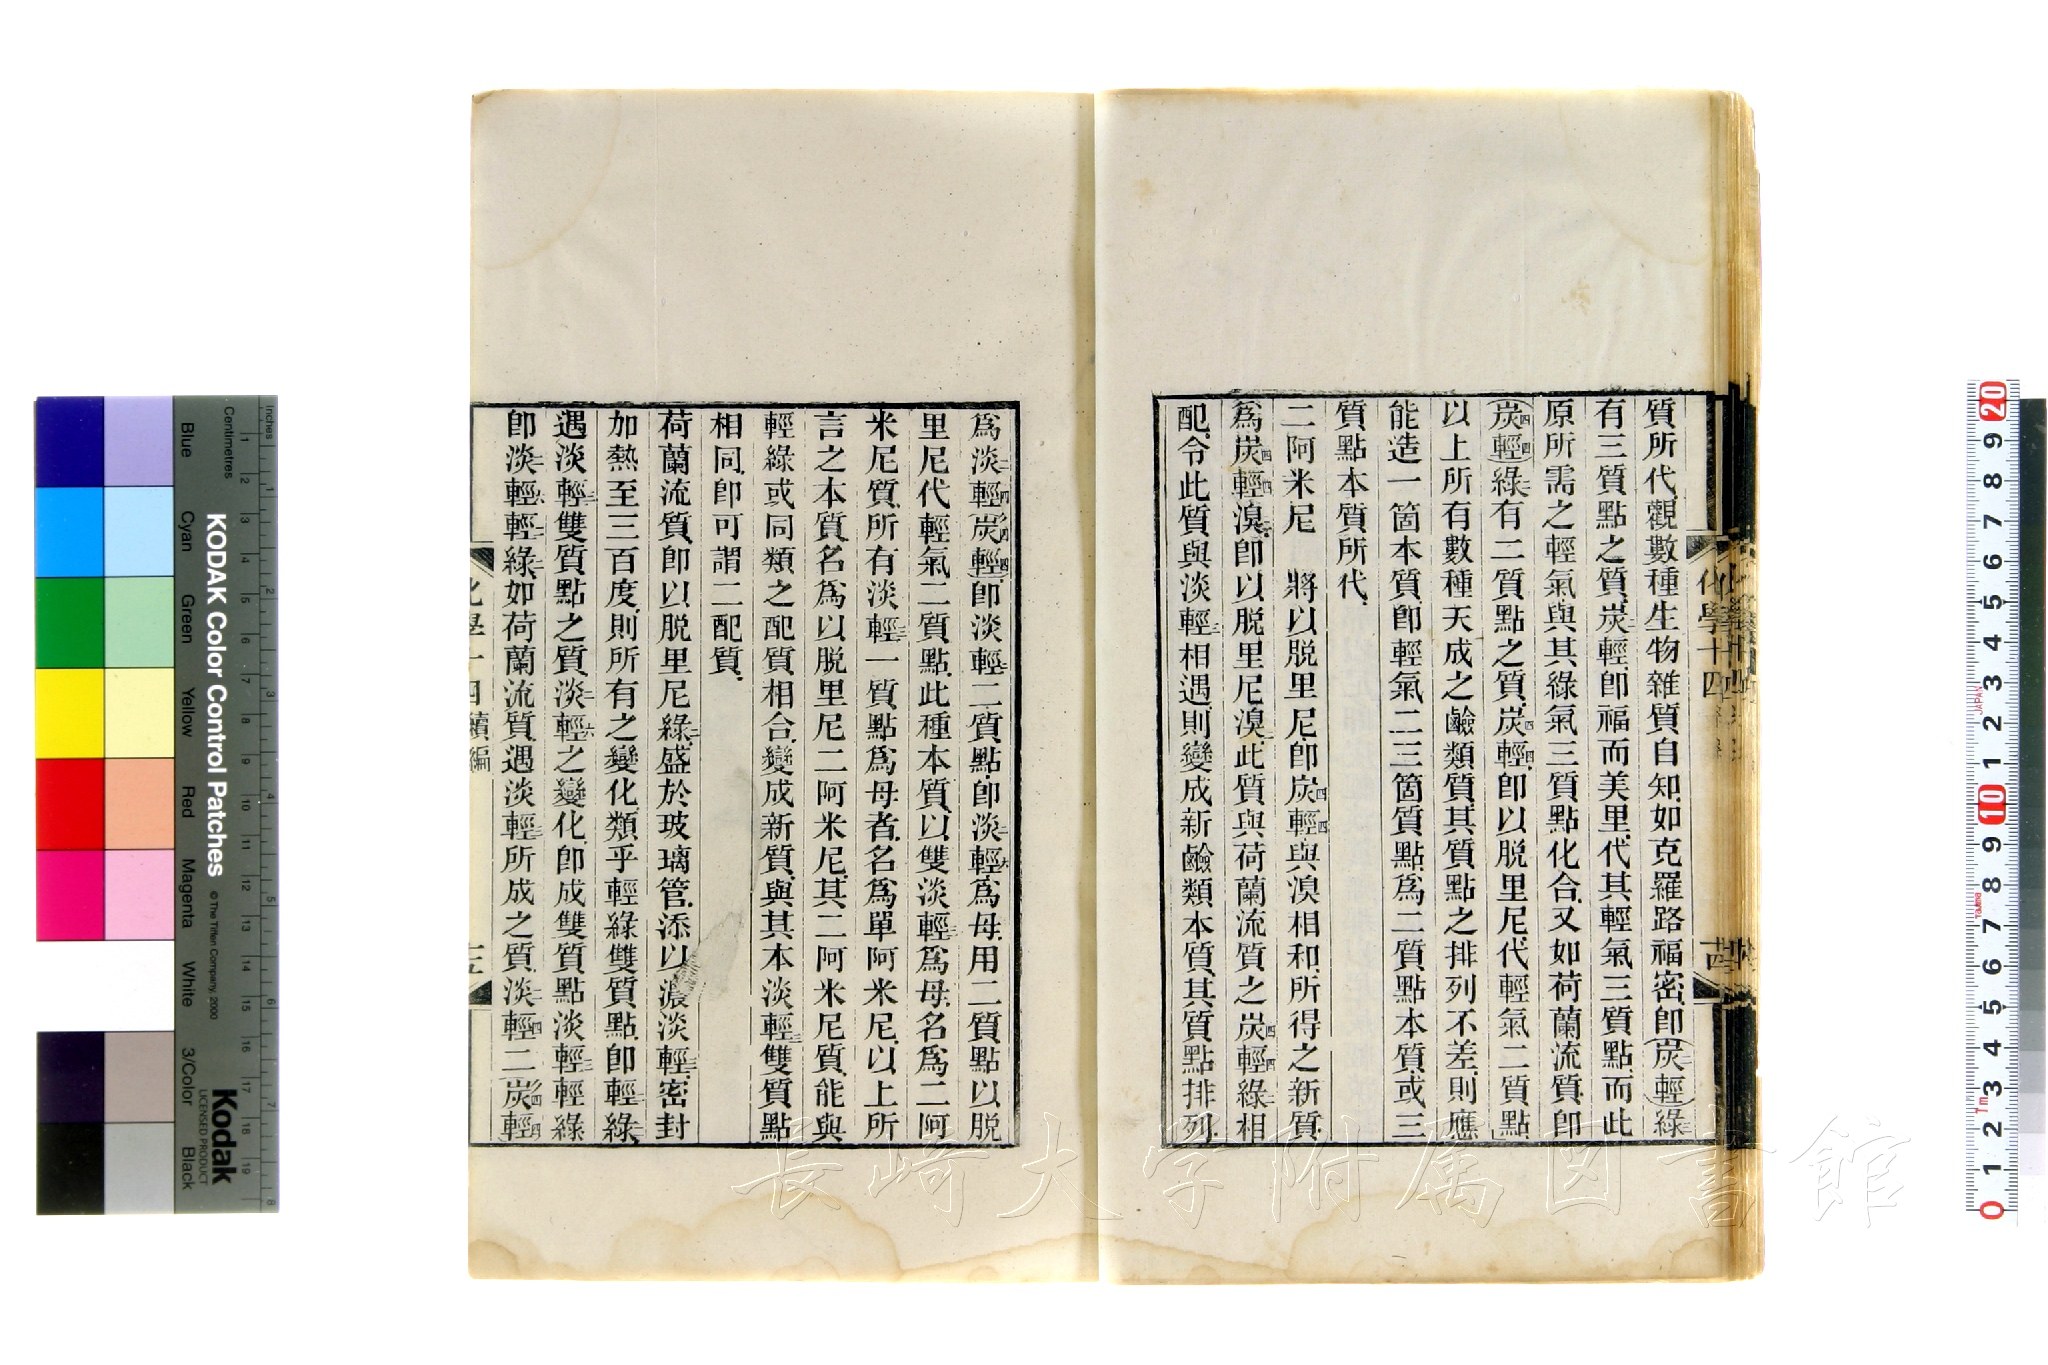 質所代觀數種生物雜質自知如克羅路福密卽(炭輕二)綠三
有三質點之質炭二輕卽福而美里代其輕氣三質點而此
原所需之輕氣與其綠氣三質點化合又如荷蘭流質卽
(炭四輕四)綠二有二質點之質炭四輕四卽以脫里尼代輕氣二質點
以上所有數種天成之鹼類質其質點之排列不差則應
能造一箇本質卽輕氣二三箇質點爲二質點本質或三
質點本質所代
二阿米尼　將以脫里尼卽炭四輕四與溴相和所得之新質
爲炭四輕四溴二卽以脫里尼溴二此質與荷蘭流質之炭四輕四綠二相
配令此質與淡輕三相遇則變成新鹼類本質其質點排列
化學十四
十四
爲淡二輕四(炭四輕四)卽淡輕三二質點卽淡二輕六爲母用二質點以脫
里尼代輕氣二質點此種本質以雙淡輕三爲母名爲二阿
米尼質所有淡輕三一質點爲母者名爲單阿米尼以上所
言之本質名爲以脫里尼二阿米尼其二阿米尼質能與
輕綠或同類之配質相合變成新質與其本淡輕三雙質點
相同卽可謂二配質
荷蘭流質卽以脫里尼綠二盛於玻璃管添以濃淡輕三密封
加熱至三百度則所有之變化類乎輕綠雙質點卽輕二綠二
遇淡輕三雙質點之質淡二輕六之變化卽成雙質點淡輕三輕綠
卽淡二輕六輕二綠二如荷蘭流質遇淡輕三所成之質淡二輕四二炭四輕四
化學十四 續編
十五
KODAK Color Control Patches
© The Tiffen Company, 2000
Kodak
LICENSED PRODUCT
Inches
Centimetres
Blue
Cyan
Green
Yellow
Red
Magenta
White
3/Color
Black
長崎大学附属図書館